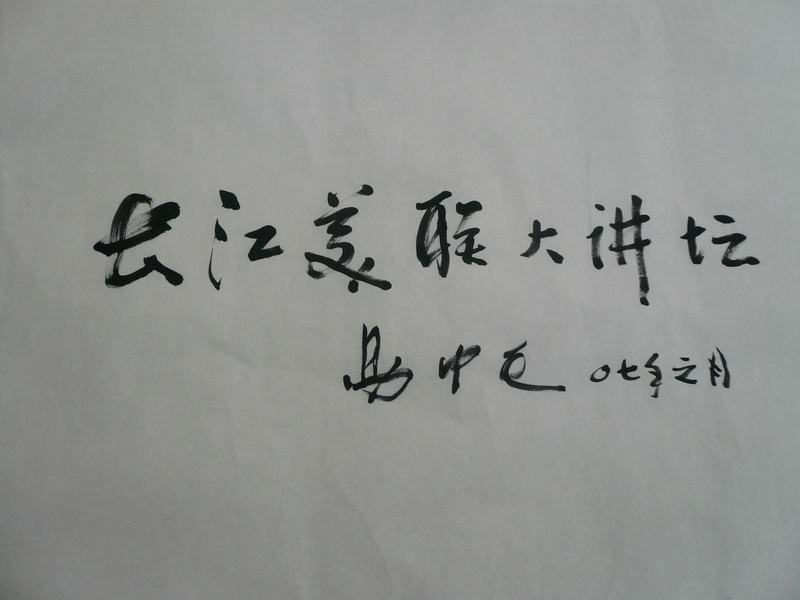 长江美联大讲坛
易中天 〇七年六月